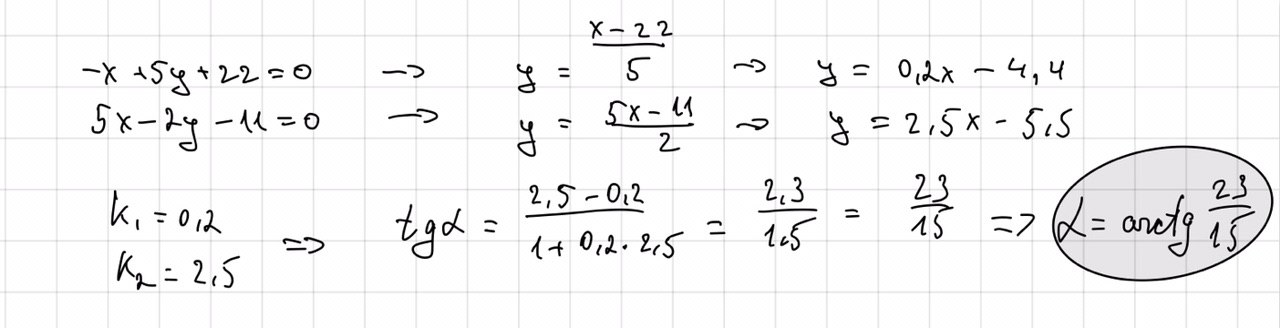 -x + 5y + 22 = 0 → y = (x - 22)/5 → y = 0,2x - 4,4
5x - 2y - 11 = 0 → y = (5x - 11)/2 → y = 2,5x - 5,5
k₁ = 0,2
k₂ = 2,5 ⇒ tgα = (2,5 - 0,2)/(1 + 0,2 · 2,5) = 2,3/1,5 = 23/15 ⇒ α = arctg 23/15